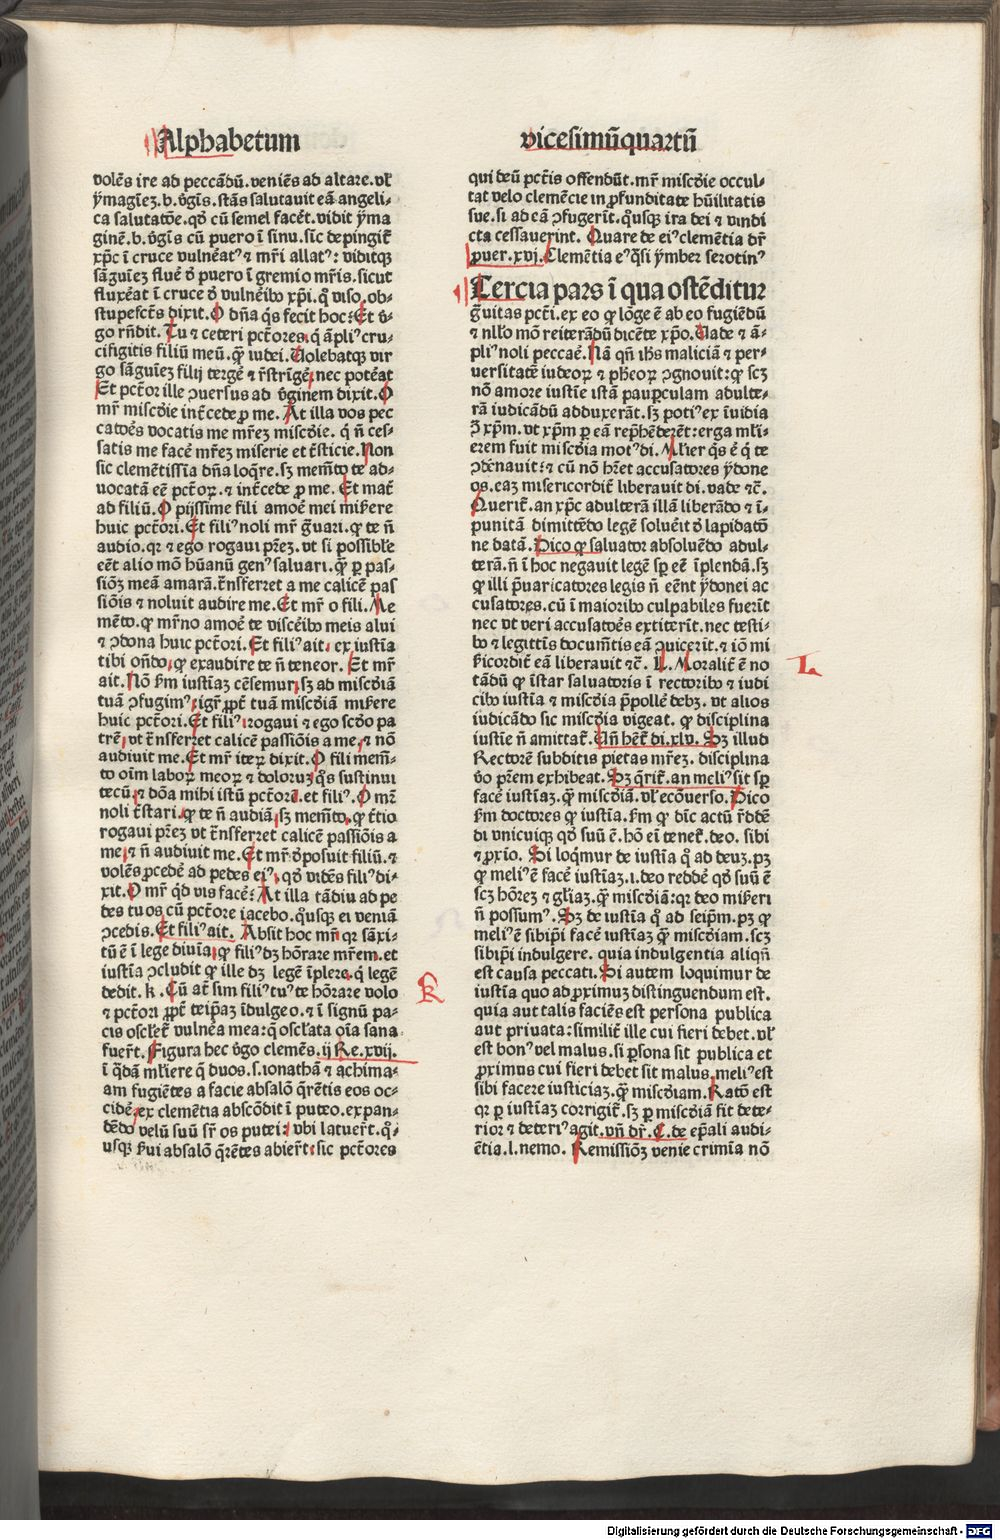 Alphabetum
volēs ire ad peccādū. veniēs ad altare. vl̄
ymagīez. b. v̄gīs. stās salutavit eā angeli-
ca salutatōe. qđ cū semel facēt. vidit yma
ginē. b. v̄gīs cū puero ī sinu. sic depingit̄
xp̄c ī cruce vulnēat⁹ ⁊ mr̄i allat⁹: viditqꝫ
sāguīez fluē đ puero ī gremio mr̄is. sicut
fluxēat ī cruce đ vulnēibꝰ xp̄i. q̄ viso. ob-
stupefct̄s dixit. O dn̄a q̄s fecit hoc: Et v̄-
go rn̄dit. Tu ⁊ ceteri pct̄ores. q̇ āpli⁹ cru-
cifigitis filiū meū. ꝙ̄ iudei. Tolebatqꝫ vir
go sāguīez filij tergē ⁊ r̄strīgē. nec potēat
Et pct̄or ille ꝯversus ad v̄ginem dixit. O
mr̄ miscd̄ie int̄cede ꝓ me. At illa vos pec
catōēs vocatis me mr̄ez miscd̄ie. q̇ n̄ ces-
satis me facē mr̄ez miserie et t̄sticie. Non
sic clemētissīa dn̄a loq̄re. sꝫ mem̄to te ad-
vocatā eē pct̄oꝝ. ⁊ int̄cede ꝓ me. Et mat̄
ad filiū. O pijssime fili amoē mei mis̄ere
huic pct̄ori. Et fili⁹ noli mr̄ ḡuari. ꝙ te n̄
audio. qꝛ ⁊ ego rogaui pr̄ez. vt si possibl̄e
eēt alio mō hūanū gen⁹ saluari. ꝙ̄ ꝑ pas-
siōꝫ meā amarā. t̄nsferret a me calicē pas
siōis ⁊ noluit audire me. Et mr̄ o fili. Me
mēto. ꝙ mr̄no amoē te viscēibꝰ meis alui
⁊ ꝯdona huic pct̄ori. Et fili⁹ ait. ex iustīa
tibi on̄do. ꝙ exaudire te n̄ teneor. Et mr̄
ait. Nō ẜm iustīaꝫ cēsemur. sꝫ ad miscd̄iā
tuā ꝯfugim⁹. igr̄ ꝓpt̄ tuā miscd̄iam mis̄ere
huic pct̄ori. Et fili⁹. rogaui ⁊ ego scd̄o pa
trē. vt t̄nsferret calicē passiōis a me. ⁊ nō
audiuit me. Et mr̄ iteꝝ dixit. O fili mem̄-
to oīm laboꝝ meoꝝ ⁊ doloruꝫ q̄s sustinui
tecū. ⁊ dōa mihi istū pct̄orē. et fili⁹. O mr̄
noli t̄stari. ꝙ te n̄ audiā. sꝫ mem̄to. ꝙ t̄tio
rogaui pr̄ez vt t̄nsferret calicē passiōis a
me. ⁊ n̄ audiuit me. Et mr̄ đposuit filiū. ⁊
volēs ꝓcedē ad pedes ei⁹. qđ vidēs fili⁹ di-
xit. O mr̄ qd̄ vis facē: At illa tādiu ad pe
des tuos cū pct̄ore iacebo. q̄usqꝫ ei veniā
ꝯcedis. Et fili⁹ ait. Absit hoc mr̄. qꝛ sāxi-
tū ē ī lege diuīa. ꝙ fili⁹ dꝫ hōrare mr̄em. et
iustīa ꝯcludit ꝙ ille dꝫ legē īplere. q̇ legē
dedit. k. Cū at̄ sim fili⁹ tu⁹ te hōrare volo
⁊ pct̄ori ꝓpt̄ teip̄aꝫ īdulgeo. ⁊ ī signū pa-
cis oscl̄et̄ vulnēa mea: q̄ oscl̄ata oīa sana
fuer̄t. Figura hec v̄go clemēs. ij Re. xvij.
ī q̄dā ml̄iere q̄ duos. s. ionathā ⁊ achima-
am fugiētes a facie absalō q̄rētis eos oc-
cidē. ex clemētia abscōdit ī puteo. expan-
dēdo velū suū sr̄ os putei: vbi latuer̄t. q̇-
usqꝫ ẜui absalō q̄rētes abier̄t: sic pct̄ores
R
vicesimūquartū
qui deū pct̄is offendūt. mr̄ miscd̄ie occul-
tat velo clemēcie in ꝓfunditate hūilitatis
sue. si ad eā ꝯfugerīt. q̄usqꝫ ira dei ⁊ vindi
cta cessauerint. Quare de ei⁹ clemētia dr̄
ꝓuer. xvj. Clemētia e⁹ q̄si ymber serotin⁹
Tercia pars ī qua ostēditur
ḡuitas pct̄i. ex eo ꝙ lōge ē ab eo fugiēdū
⁊ nll̄o mō reiterādū dicēte xp̄o. Vade ⁊ ā-
pli⁹ noli peccaē. Nā qn̄ ih̄s maliciā ⁊ per-
uersitatē iudeoꝝ ⁊ ph̄eoꝝ ꝯgnouit: ꝙ scꝫ
nō amore iustīe istā pauꝑculam adulte-
rā iudicādū adduxerāt. sꝫ poti⁹ ex īuidia
ꝯ̄ xp̄m. vt xp̄m ꝑ eā rep̄hēderēt: erga ml̄i-
erem fuit miscd̄ia mot⁹ di. Ml̄ier q̄s ē q̇ te
ꝯdēnauit: ⁊ cū nō hēt accusatores ydone
os. eaꝫ misericordit̄ liberauit di. vade ⁊c̄.
Querit̄. an xp̄c adulterā illā liberādo ⁊ ī-
punitā dimittēdo legē soluēit đ lapidatō
ne datā. Dico ꝙ saluator absoluēdo adul-
terā. n̄ ī hoc negauit legē sꝑ eē īplendā. sꝫ
ꝙ illi p̄uaricatores legis n̄ eēnt ydonei ac
cusatores. cū ī maioribꝰ culpabiles fuerīt
nec vt veri accusatōēs extiterīt. nec testi-
bꝰ ⁊ legittīs docum̄tis eā ꝯuicerīt. ⁊ iō mi
s̄icordit̄ eā liberauit ⁊c̄. L. Moralit̄ ē no
tādū ꝙ īstar saluatoris ī rectoribꝰ ⁊ iudi
cibꝰ iustīa ⁊ miscd̄ia p̄pollē debꝫ. vt alios
iudicādo sic miscd̄ia vigeat. ꝙ disciplina
iustīe n̄ amittat̄. Vn̄ hēt̄ di. xlv. Sꝫ illud
Rectorē subditis pietas mr̄ez. disciplina
v̄o pr̄em exhibeat. Sꝫ q̄rit̄. an meli⁹ sit sꝑ
facē iustīaꝫ. ꝙ̄ miscd̄iā. vl̄ ecōuerso. Dico
ẜm doctores ꝙ iustīa. ẜm ꝙ dīc actū r̄ddē
di vnicuiqꝫ qđ suū ē. hō eī tenet̄. deo. sibi
⁊ ꝓxīo. Si loq̄mur de iustīa q̄ ad deuꝫ. pꝫ
ꝙ meli⁹ ē facē iustīaꝫ. i. deo reddē qđ suū ē
scꝫ hōrēꝫ ⁊ gl̄iaꝫ. ꝙ̄ miscd̄iā: qꝛ deo mis̄eri
n̄ possum⁹. Sꝫ de iustīa q̄ ad seip̄m. pꝫ ꝙ
meli⁹ ē sibip̄i facē iustīaꝫ ꝙ̄ miscd̄iam. scꝫ
sibip̄i indulgere. quia indulgentia aliqn̄
est causa peccati. Si autem loquimur de
iustīa quo ad ꝓximuꝫ distinguendum est.
quia aut talis faciēs est persona publica
aut priuata: similit̄ ille cui fieri debet. vl̄
est bon⁹ vel malus. si ꝑsona sit publica et
ꝓximus cui fieri debet sit malus. meli⁹ est
sibi facere iusticiaꝫ. ꝙ̄ miscd̄iam. Ratō est
qꝛ ꝑ iustīaꝫ corrigit̄. sꝫ ꝑ miscd̄iam fit dete-
rior ⁊ deteri⁹ agit. vn̄ dr̄. C. de ep̄ali audi-
ētia. l. nemo. Remissiōꝫ venie crimīa nō
L
Digitalisierung gefördert durch die Deutsche Forschungsgemeinschaft - DFG